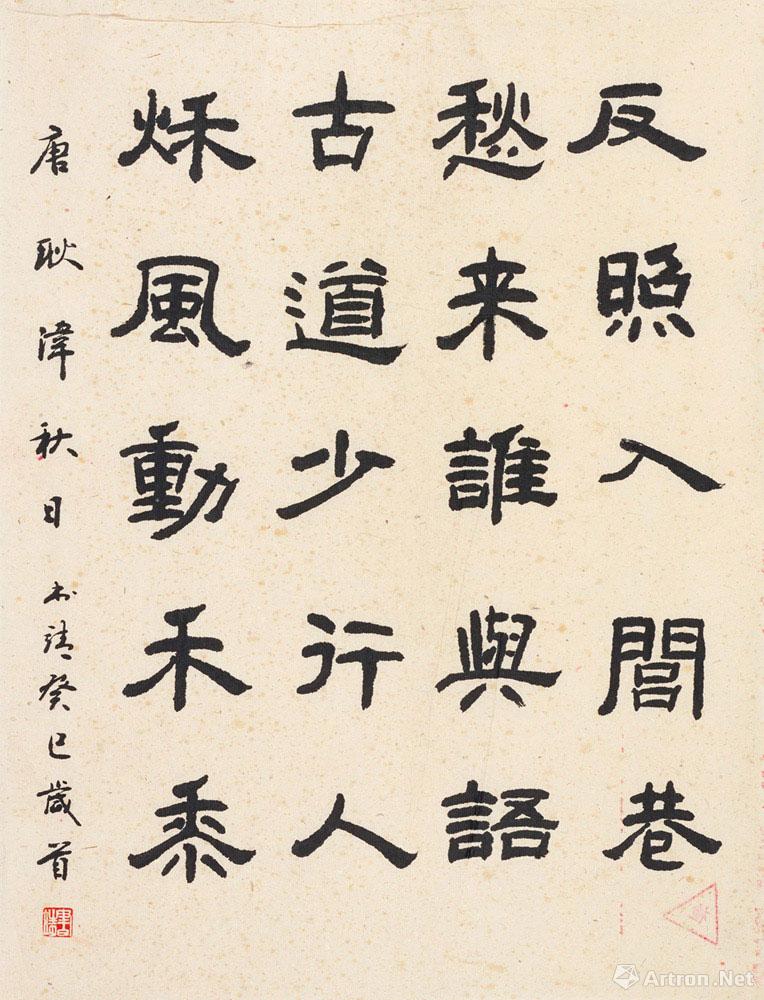 反照入閭巷
愁来誰與語
古道少行人
秌風動禾黍
唐耿湋秋日 癸巳歲首
Artron.Net